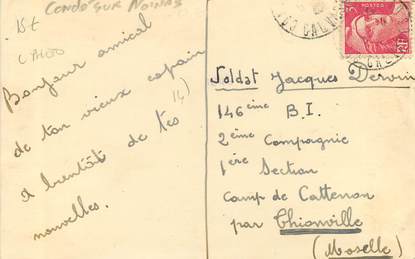 CONDÉ SUR NOIREAU
Bonjour amical
de ton vieux copain
A bientôt de tes
nouvelles.
POSTES
Soldat Jacques
146ème B.I.
2ème Compagnie
1ère Section
Camp de Cattenon
par Thionville
(Moselle)